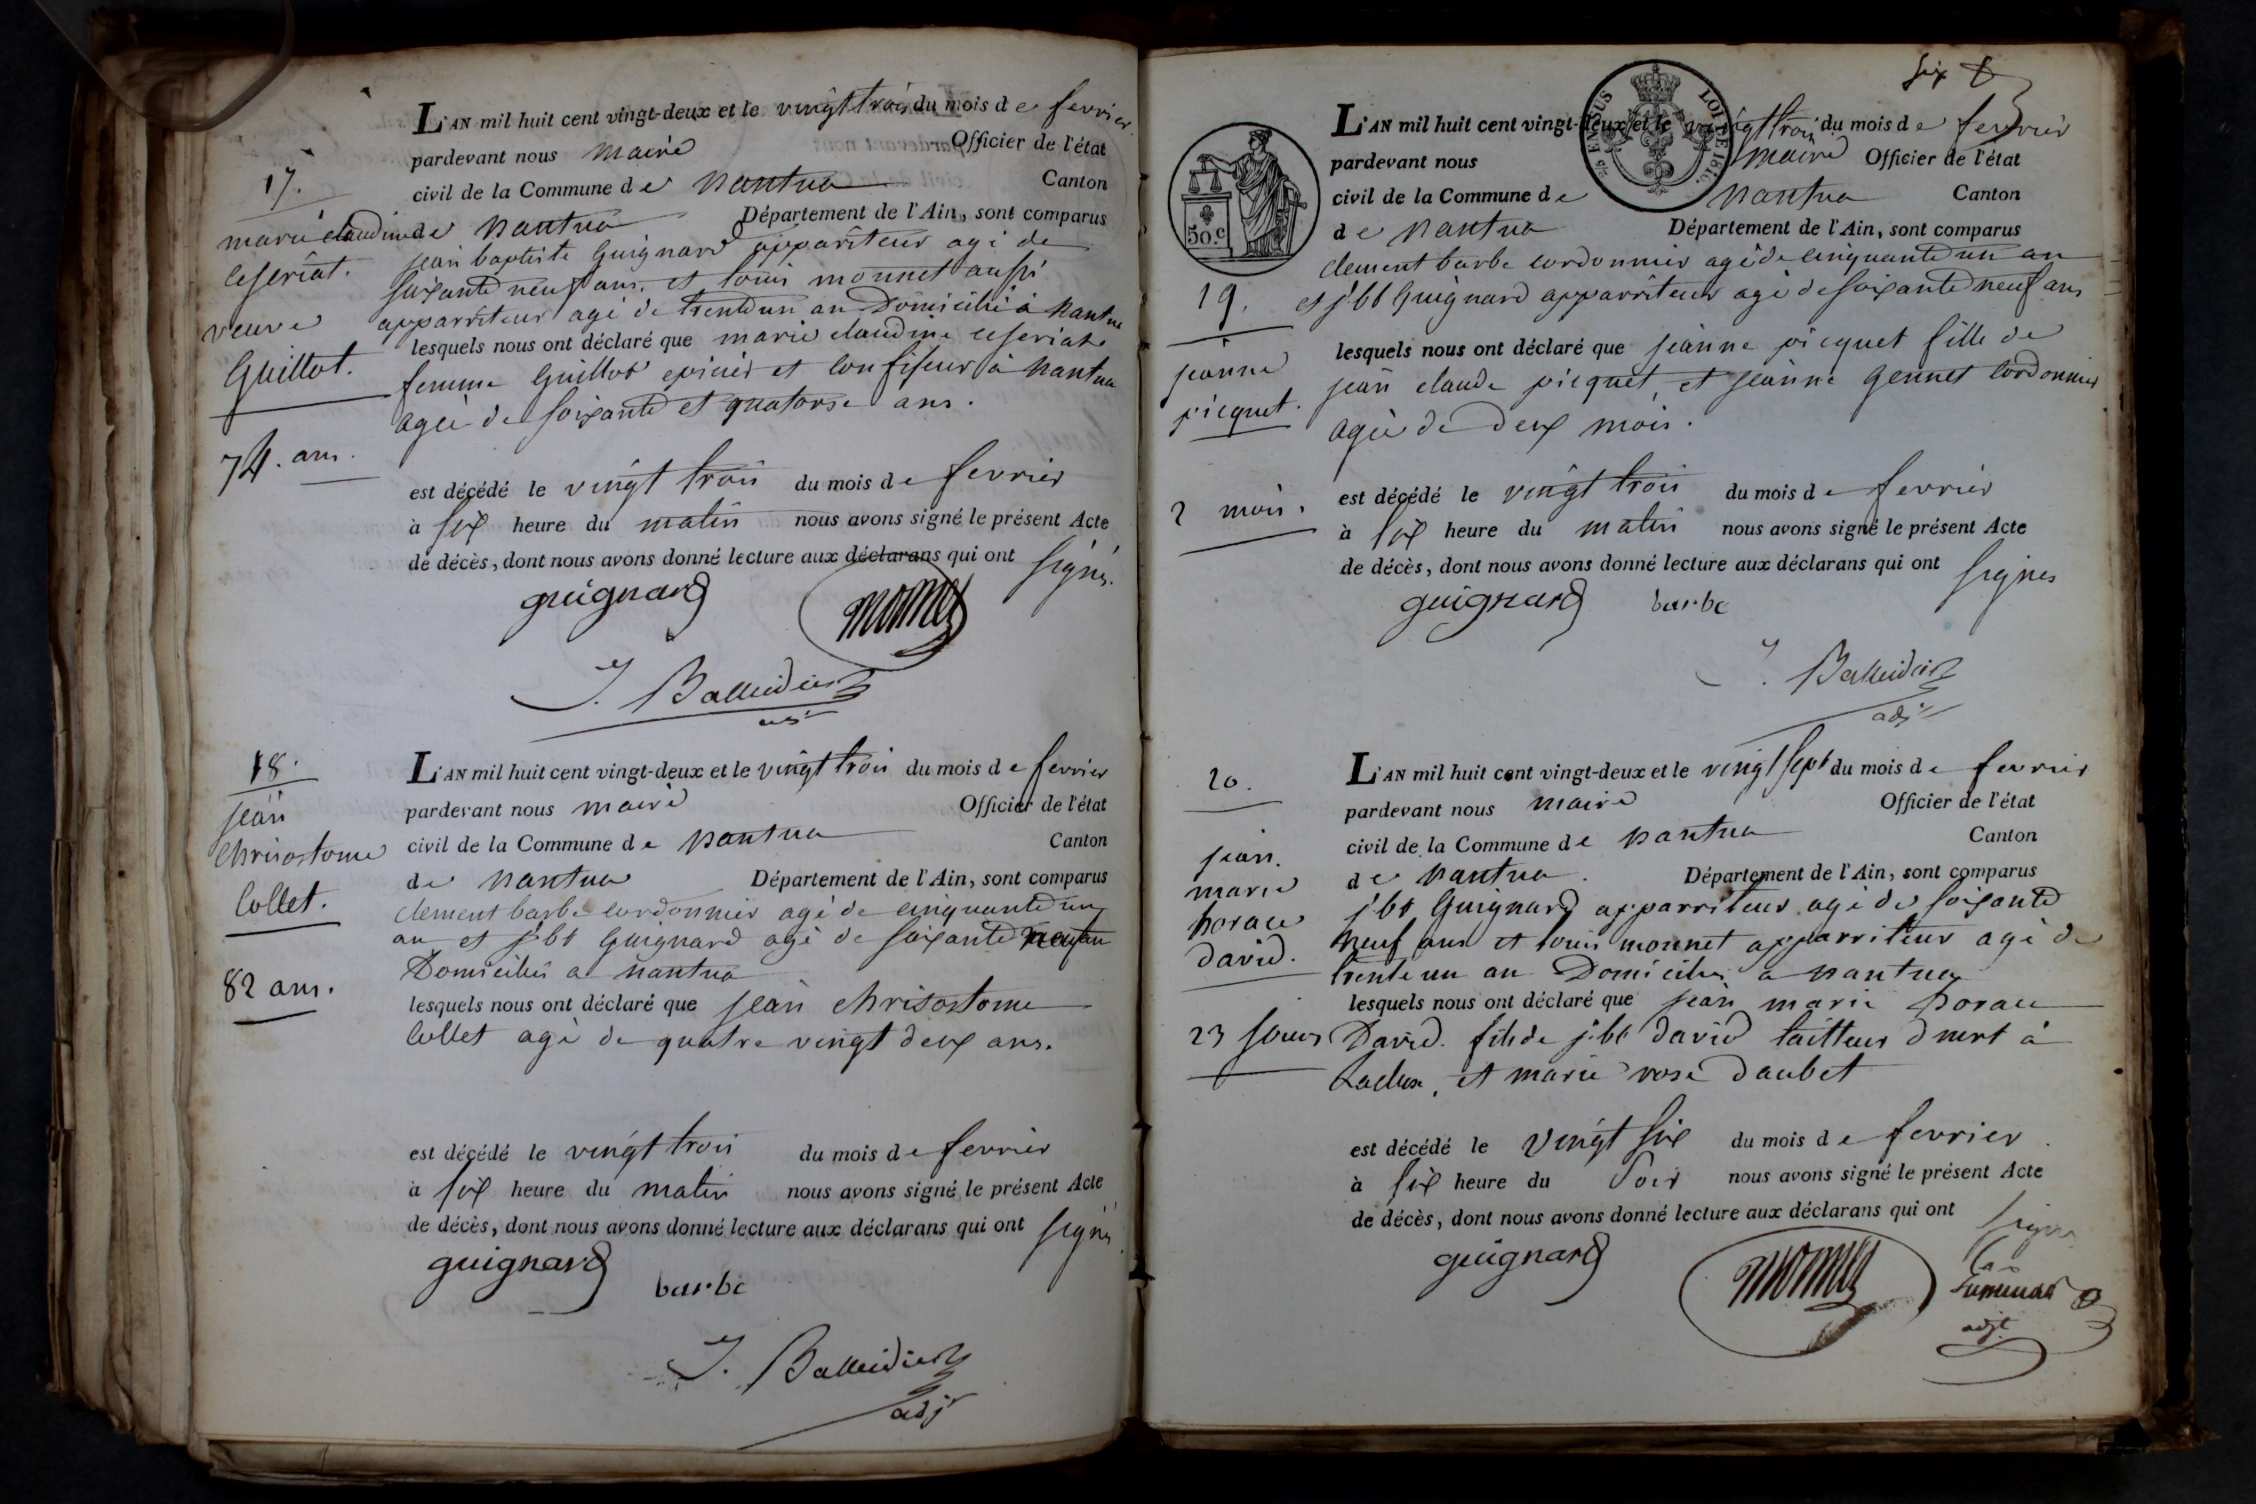 L'AN mil huit cent vingt-deux et le vingt trois du mois de fevrier
pardevant nous maire Officier de l'état
civil de la Commune de nantua Canton
de nantua Département de l'Ain, sont comparus
jean baptiste Guignard apparriteur agé de
soixante neuf ans, et louis monnet aussi
apparriteur agé de trente un an Domiciliés à nantua
lesquels nous ont déclaré que marie claudine
femme Guillot epicier et confiseur à nantua
agée de soixante et quatorse ans.
est décédé le vingt trois du mois de fevrier
à six heure du matin nous avons signé le présent Acte
de décès, dont nous avons donné lecture aux déclarans qui ont signés.
guignard monnet
J. Balleidier
adj
17.
marie claudine
veuve
Guillot.
74. ans.
L'AN mil huit cent vingt-deux et le vingt trois du mois de fevrier
pardevant nous maire Officier de l'état
civil de la Commune de nantua Canton
de nantua Département de l'Ain, sont comparus
clement barbe cordonnier agé de cinquante un
an et j. bt Guignard agé de soixante neuf an
Domiciliés a nantua
lesquels nous ont déclaré que jean chrisostome
Collet agé de quatre vingt deux ans.
est décédé le vingt trois du mois de fevrier
à six heure du matin nous avons signé le présent Acte
de décès, dont nous avons donné lecture aux déclarans qui ont signés.
guignard
barbe
J. Balleidier
adj
18.
jean
chrisostome
Collet.
82 ans.
six
ENSUS
LOI DE 1816.
50.c
L'AN mil huit cent vingt-deux et le vingt trois du mois de fevrier
pardevant nous maire Officier de l'état
civil de la Commune de nantua Canton
de nantua Département de l'Ain, sont comparus
clement barbe cordonnier agé de cinquante un an
et j. bt Guignard apparriteur agé de soixante neuf ans
lesquels nous ont déclaré que jeanne picquet fille de
jean claude picquet, et jeanne Gennet cordonnier
agée de deux mois.
est décédé le vingt trois du mois de fevrier
à six heure du matin nous avons signé le présent Acte
de décès, dont nous avons donné lecture aux déclarans qui ont signés
guignard barbe
J. Balleidier
adj
19.
jeanne
picquet.
2 mois.
L'AN mil huit cent vingt-deux et le vingt sept du mois de fevrier
pardevant nous maire Officier de l'état
civil de la Commune de nantua Canton
de nantua. Département de l'Ain, sont comparus
j. bt Guignard apparriteur agé de soixante
neuf ans et louis monnet apparriteur agé de
trente un an Domiciliés a nantua
lesquels nous ont déclaré que jean marie horace
David. fils de j. bt david tailleur à
Lacluse, et marie rose daubet
est décédé le vingt six du mois de fevrier
à six heure du soir nous avons signé le présent Acte
de décès, dont nous avons donné lecture aux déclarans qui ont signés
guignard monnet
adjt
20.
jean.
marie
horace
david.
23 jours